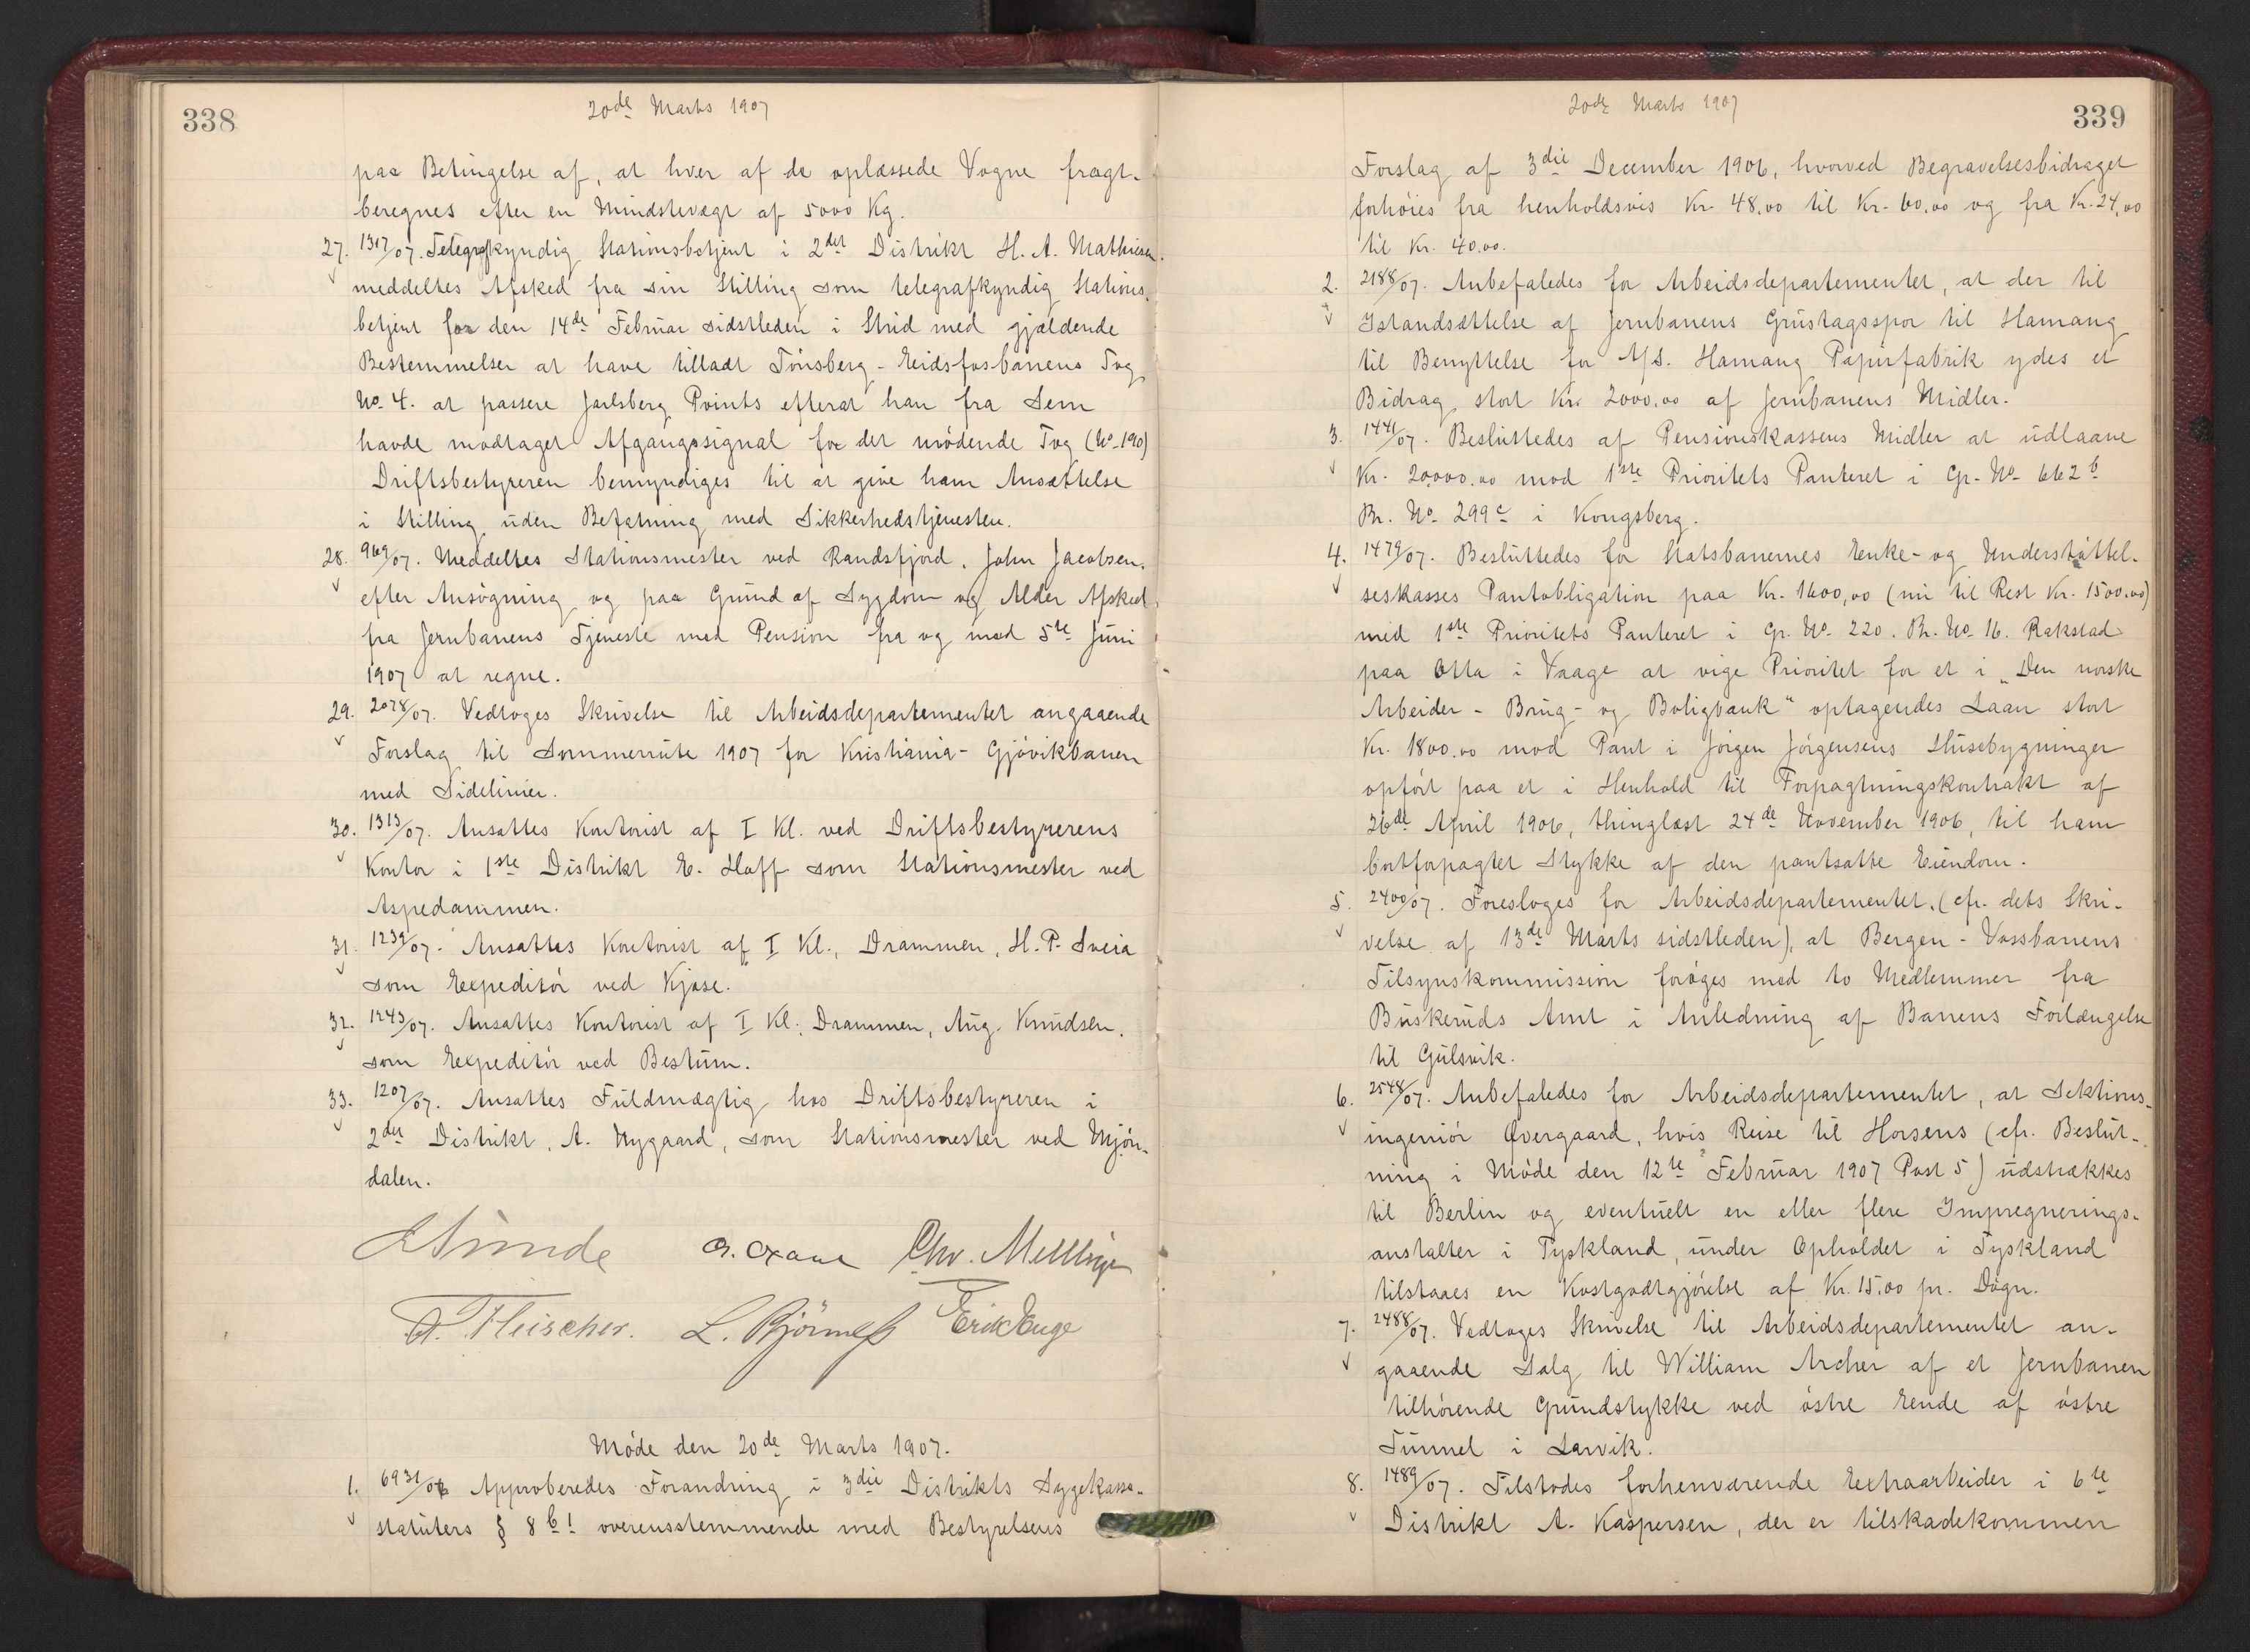 338
20de Marts 1907
paa Betingelse af, at hver af de oplæssede Vogne fragt-
beregnes efter en Mindstevægt af 5000 Kg.
27. 1317/07. Telegrafkyndig Stationsbetjent i 2det Distrikt H. A. Mathiesen
meddeltes Afsked fra sin Stilling som telegrafkyndig Stations-
betjent for den 14de Februar sidstleden i Strid med gjældende
Bestemmelser at have tilladt Tönsberg-Eidsfosbanens Tog
No 4. at passere Jarlsberg Points efterat han fra Sem
havde modtaget Afgangssignal for det mödende Tog (No 190)
Driftsbestyreren bemyndiges til at give ham Ansættelse
i Stilling uden Befatning med Sikkerhedstjenesten.
28. 969/07. Meddeltes Stationsmester ved Randsfjord, John Jacobsen,
efter Ansögning og paa Grund af Sygdom og Alder Afsked
fra Jernbanens Tjeneste med Pension fra og med 5te Juni
1907 at regne.
29. 2078/07. Vedtoges Skrivelse til Arbeidsdepartementet angaaende
Forslag til Sommerrute 1907 for Kristiania-Gjövikbanen
med Sidelinier.
30. 1313/07. Ansattes Kontorist af I Kl. ved Driftsbestyrerens
Kontor i 1ste Distrikt E. Hoff som Stationsmester ved
Aspedammen.
31. 1239/07. Ansattes Kontorist af I Kl., Drammen, H. P. Sveia
som Expeditör ved Kjose.
32. 1243/07. Ansattes Kontorist af I Kl., Drammen, Aug. Knudsen,
som Expeditör ved Bestum.
33. 1207/07. Ansattes Fuldmægtig hos Driftsbestyreren i
2det Distrikt, A. Nygaard, som Stationsmester ved Mjön-
dalen.
Chr. Mellbye
Fleischer. L. Björneß Erik Enge
Möde den 20de Marts 1907.
1. 6931/06 Approberedes Forandring i 3die Distrikts Sygekasse-
statuters § 8 b1 overensstemmende med Bestyrelsens
339
20de Marts 1907
Forslag af 3die December 1906, hvorved Begravelsesbidraget
forhöies fra henholdsvis Kr. 48,00 til Kr. 60,00 og fra Kr. 24,00
til Kr. 40.00.
2. 2188/07. Anbefaledes for Arbeidsdepartementet, at der til
Istandsættelse af Jernbanens Grustagsspor til Hamang
til Benyttelse for A/S. Hamang Papirfabrik ydes et
Bidrag stort Kr. 2000,00 af Jernbanens Midler.
3. 1441/07. Besluttedes af Pensionskassens Midler at udlaane
Kr. 20000.00 mod 1ste Prioritets Panteret i Gr. No 662 b
Br. No 299 c i Kongsberg.
4. 1479/07. Besluttedes for Statsbanernes Enke- og Understöttel-
seskasses Pantobligation paa Kr. 1600,00 (nu til Rest Kr. 1500.00)
med 1ste Prioritets Panteret i Gr. No 220. Br. No 16. Rakstad
paa Otta i Vaage at vige Prioritet for et i „Den norske
Arbeider- Brug- og Boligbank" optagendes Laan stort
Kr. 1800.00 mod Pant i Jörgen Jörgensens Husebygninger
opfört paa et i Henhold til Forpagtningskontrakt af
26de April 1906, thinglæst 24de November 1906, til ham
bortforpagtet Stykke af den pantsatte Eiendom.
5. 2400/07. Foresloges for Arbeidsdepartementet, (cfr. dets Skri-
velse af 13de Marts sidstleden), at Bergen-Vossbanens
Tilsynskommission foröges med to Medlemmer fra
Buskeruds Amt i Anledning af Banens Forlængelse
til Gulsvik.
6. 2548/07. Anbefaledes for Arbeidsdepartementet, at Sektions-
ingeniör Övergaard, hvis Reise til Horsens (cfr. Beslut-
ning i Möde den 12te Februar 1907 Post 5) udstrækkes
til Berlin og eventuelt en eller flere Imprægnerings-
anstalter i Tyskland, under Opholdet i Tyskland
tilstaaes en Kostgodtgjörelse af Kr. 15,00 pr. Dögn.
7. 2488/07. Vedtoges Skrivelse til Arbeidsdepartementet an-
gaaende Salg til William Archer af et Jernbanen
tilhörende Grundstykke ved östre Ende af östre
Tunnel i Larvik.
8. 1489/07. Tilstodes forhenværende Extraarbeider i 6te
Distrikt A. Kaspersen, der er tilskadekommen